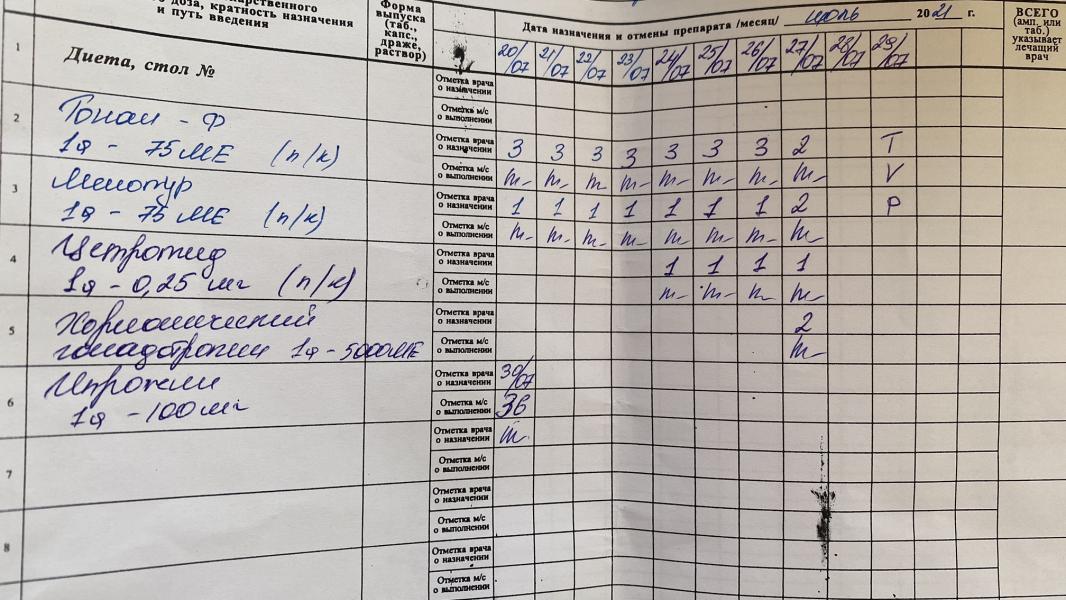 доза, кратность назначения
и путь введения
Форма
выпуска
(таб.,
капс.,
драже,
раствор)
Дата назначения и отмены препарата /месяц/ июль 2021 г.
ВСЕГО
(амп. или
таб.)
указывает
лечащий
врач
1
Диета, стол №
20/07 21/07 22/07 23/07 24/07 25/07 26/07 27/07 28/07 29/07
Отметка врача
о назначении
Отметка м/с
о выполнении
2
Гонал - Ф
1ф - 75 МЕ (п/к)
Отметка врача
о назначении
3 3 3 3 3 3 3 2 Т
Отметка м/с
о выполнении
V
3
Менопур
1ф - 75 МЕ (п/к)
Отметка врача
о назначении
1 1 1 1 1 1 1 2 Р
Отметка м/с
о выполнении
4
Цетротид
1ф - 0,25 мг (п/к)
Отметка врача
о назначении
1 1 1 1
Отметка м/с
о выполнении
5
Хорионический
гонадотропин 1ф - 5000 МЕ
Отметка врача
о назначении
2
Отметка м/с
о выполнении
6
Ипрожин
1ф - 100 мг
Отметка врача
о назначении
30/07
Отметка м/с
о выполнении
Отметка врача
о назначении
7
Отметка м/с
о выполнении
Отметка врача
о назначении
Отметка м/с
о выполнении
8
Отметка врача
о назначении
Отметка м/с
о выполнении